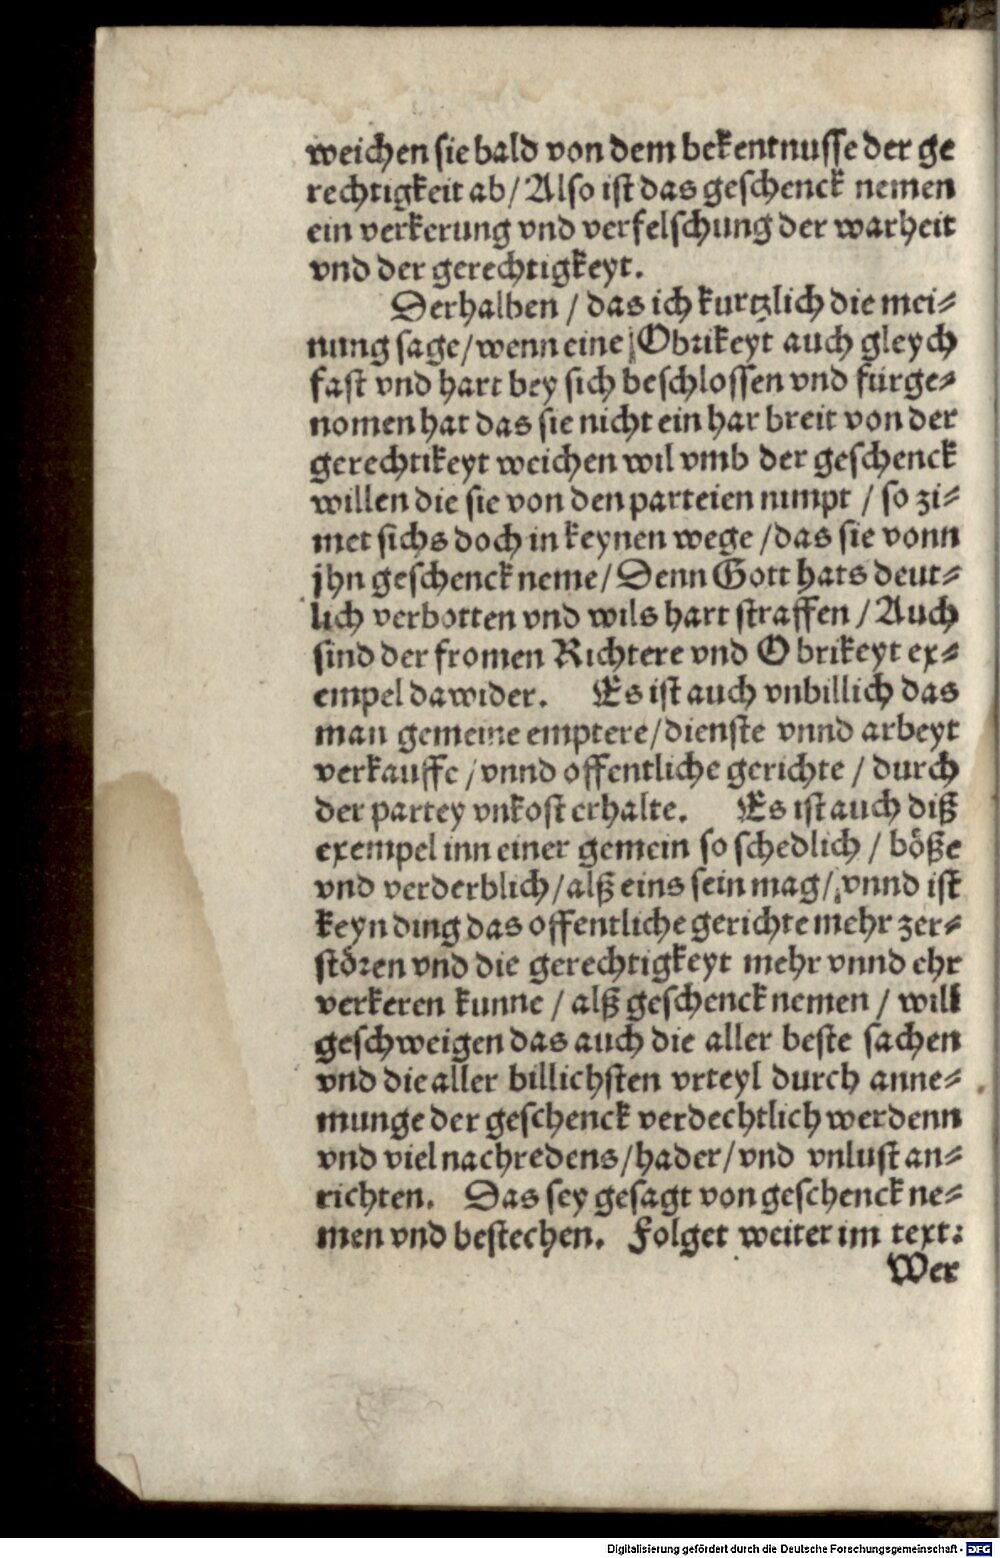 weichen sie bald von dem bekentnusse der ge
rechtigkeit ab / Also ist das geschenck nemen
ein verkerung vnd verfelschung der warheit
vnd der gerechtigkeyt.
Derhalben / das ich kurtzlich die mei⸗
nung sage / wenn eine Obrikeyt auch gleych
fast vnd hart bey sich beschlossen vnd fürge⸗
nomen hat das sie nicht ein har breit von der
gerechtikeyt weichen wil vmb der geschenck
willen die sie von den parteien nimpt / so zi⸗
met sichs doch in keynen wege / das sie vonn
jhn geschenck neme / Denn Gott hats deut⸗
lich verbotten vnd wils hart straffen / Auch
sind der fromen Richtere vnd Obrikeyt ex⸗
empel dawider. Es ist auch vnbillich das
man gemeine emptere / dienste vnnd arbeyt
verkauffe / vnnd offentliche gerichte / durch
der partey vnkost erhalte. Es ist auch diß
exempel inn einer gemein so schedlich / böße
vnd verderblich / alß eins sein mag / vnnd ist
keyn ding das offentliche gerichte mehr zer⸗
stören vnd die gerechtigkeyt mehr vnnd ehr
verkeren kunne / alß geschenck nemen / will
geschweigen das auch die aller beste sachen
vnd die aller billichsten vrteyl durch anne⸗
munge der geschenck verdechtlich werdenn
vnd viel nachredens / hader / vnd vnlust an⸗
richten. Das sey gesagt von geschenck ne⸗
men vnd bestechen. Folget weiter im text:
Wer
Digitalisierung gefördert durch die Deutsche Forschungsgemeinschaft - DFG